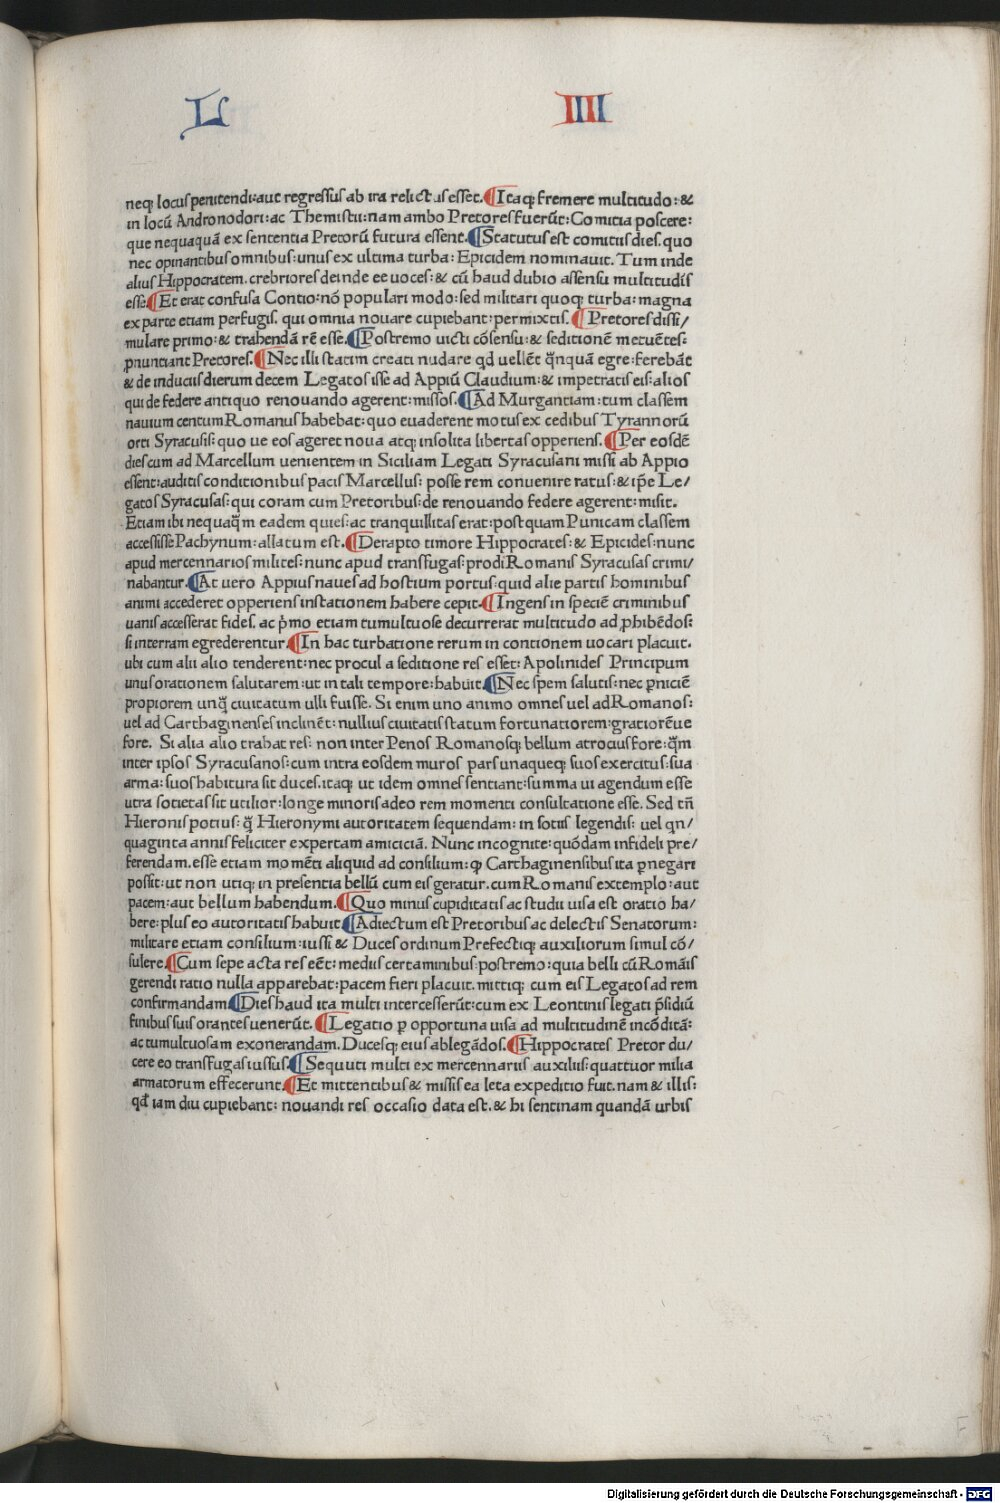 L IIII
neqꝫ locus penitendi: aut regressus ab ira relictus esset. ¶Itaqꝫ fremere multitudo: &
in locū Andronodori: ac Themistii: nam ambo Pretores fuerūt: Comitia poscere:
que nequaquā ex sententia Pretorū futura essent. ¶Statutus est comitiis dies. quo
nec opinantibus omnibus: unus ex ultima turba: Epicidem nominauit. Tum inde
alius Hippocratem. crebriores deinde ee uoces: & cū haud dubio assensu multitudis
esse. ¶Et erat confusa Contio: nō populari modo: sed militari quoqꝫ turba: magna
ex parte etiam perfugis. qui omnia nouare cupiebant: permixtis. ¶Pretores dissi/
mulare primo: & trahendā rē esse. ¶Postremo uicti cōsensu: & seditionē metuētes:
ꝓnuntiant Pretores. ¶Nec illi statim creati nudare qd uellēt q̄nquā egre: ferebāt
& de induciis dierum decem Legatos isse ad Appiū Claudium: & impetratis eis: alios
qui de federe antiquo renouando agerent: missos. ¶Ad Murgantiam: tum classem
nauium centum Romanus habebat: quo euaderent motus ex cedibus Tyrannorū
orti Syracusis: quo ue eos ageret noua atqꝫ insolita libertas opperiens. ¶Per eosdē
dies cum ad Marcellum uenientem in Siciliam Legati Syracusani missi ab Appio
essent: auditis conditionibus pacis Marcellus: posse rem conuenire ratus: & ip̄e Le/
gatos Syracusas: qui coram cum Pretoribus: de renouando federe agerent: misit.
Etiam ibi nequaq̄m eadem quies: ac tranquillitas erat: postquam Punicam classem
accessisse Pachynum: allatum est. ¶Derapto timore Hippocrates: & Epicides: nunc
apud mercennarios milites: nunc apud transfugas: prodi Romanis Syracusas crimi/
nabantur. ¶At uero Appius naues ad hostium portus: quid alie partis hominibus
animi accederet opperiens instationem habere cepit. ¶Ingens in speciē criminibus
uanis accesserat fides. ac p̄mo etiam tumultuose decurrerat multitudo ad ꝓhibēdos:
si in terram egrederentur. ¶In hac turbatione rerum in contionem uocari placuit.
ubi cum alii alio tenderent: nec procul a seditione res esset: Apolinides Principum
unus orationem salutarem: ut in tali tempore: habuit. ¶Nec spem salutis: nec ꝑniciē
propiorem unq̄ ciuitatum ulli fuisse. Si enim uno animo omnes uel ad Romanos:
uel ad Carthaginenses inclinēt: nullius ciuitatis statum fortunatiorem: gratiorēue
fore. Si alia alio trahat res: non inter Penos Romanosqꝫ bellum atrocius fore: q̄m
inter ipsos Syracusanos: cum intra eosdem muros pars unaqueqꝫ suos exercitus: sua
arma: suos habitura sit duces. itaqꝫ ut idem omnes sentiant: summa ui agendum esse
utra societas sit utilior: longe minoris adeo rem momenti consultatione esse. Sed tñ
Hieronis potius: q̄ Hieronymi autoritatem sequendam: in sotiis legendis: uel qn/
quaginta annis feliciter expertam amiciciā. Nunc incognite: quōdam infideli pre/
ferendam. esse etiam momēti aliquid ad consilium: ꝙ Carthaginensibus ita ꝑnegari
possit: ut non utiqꝫ in presentia bellū cum eis geratur. cum Romanis extemplo: aut
pacem: aut bellum habendum. ¶Quo minus cupiditatis ac studii uisa est oratio ha/
bere: plus eo autoritatis habuit. ¶Adiectum est Pretoribus ac delectis Senatorum:
militare etiam consilium: iussi & Duces ordinum Prefectiqꝫ auxiliorum simul cō/
sulere. ¶Cum sepe acta res eēt: mediis certaminibus: postremo: quia belli cū Romāis
gerendi ratio nulla apparebat: pacem fieri placuit. mittiqꝫ cum eis Legatos ad rem
confirmandam. ¶Dies haud ita multi intercesserūt: cum ex Leontinis legati p̄sidiū
finibus suis orantes uenerūt. ¶Legatio ꝑ opportuna uisa ad multitudinē incōditā:
ac tumultuosam exonerandam. Ducesqꝫ eius ablegādos. ¶Hippocrates Pretor du/
cere eo transfugas iussus. ¶Sequuti multi ex mercennariis auxiliis: quattuor milia
armatorum effecerunt. ¶Et mittentibus & missis ea leta expeditio fuit. nam & illis:
qd̄ iam diu cupiebant: nouandi res occasio data est. & hi sentinam quandā urbis
Digitalisierung gefördert durch die Deutsche Forschungsgemeinschaft - DFG